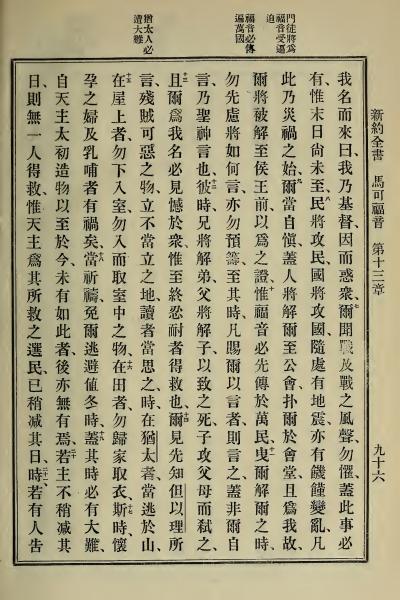 新約全書 馬可福音 第十三章 九十六
門徒將爲
福音受逼
迫
福音必傳
遍萬國
猶太人必
遭大難
我名而來曰我乃基督、因而惑衆、七爾聞戰及戰之風聲勿懼、蓋此事必
有、惟末日尙未至、八民將攻民、國將攻國、隨處有地震、亦有饑饉變亂、凡
此乃災禍之始、九爾當自愼、蓋人將解爾至公會、扑爾於會堂、且爲我故、
爾將被解至侯王前、以爲之證、十惟福音必先傳於萬民、十一曳爾解爾之時、
勿先慮將如何言、亦勿預籌、至其時、凡賜爾以言者則言之、蓋非爾自
言、乃聖神言也、十二彼時兄將解弟、父將解子、以致之死、子攻父母而弒之、
十三且爾爲我名必見憾於衆、惟至終忍耐者得救也、十四爾見先知但以理所
言殘賊可惡之物、立不當立之地、讀者當思之、時在猶太者、當逃於山、
十五在屋上者、勿下入室、勿入而取室中之物、十六在田者、勿歸家取衣、十七斯時懷
孕之婦、及乳哺者有禍矣、十八當祈禱免爾逃避値冬時、十九蓋其時必有大難、
自天主太初造物、以至於今、未有如此者、後亦無有焉、二十若主不稍減其
日、則無一人得救、惟天主爲其所救之選民、已稍減其日、二十一時若有人告